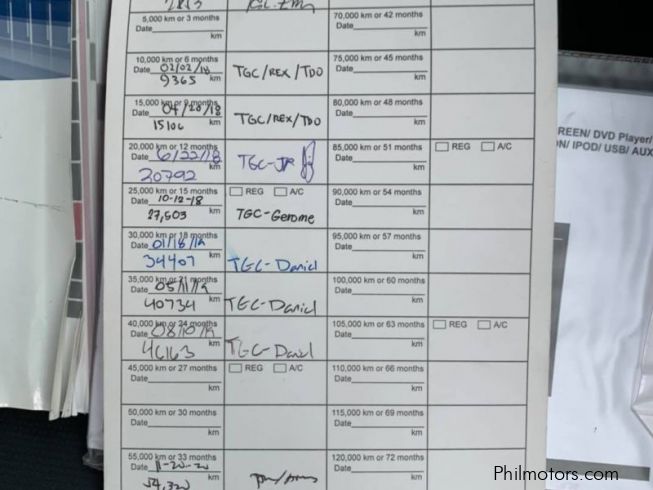 2853
5,000 km or 3 months
Date
km
70,000 km or 42 months
Date
km
10,000 km or 6 months
Date 02/02/18
9365 km
TGC/REX/TDO
75,000 km or 45 months
Date
km
15,000 km or 9 months
Date 04/20/18
15106 km
TGC/REX/TDO
80,000 km or 48 months
Date
km
20,000 km or 12 months
Date 6/22/18
20792 km
TGC-JR
85,000 km or 51 months
Date
km
REG A/C
25,000 km or 15 months
Date 10-12-18
27,503 km
REG A/C
TGC-Gerome
90,000 km or 54 months
Date
km
30,000 km or 18 months
Date 01/18/19
34407 km
TGC-Daniel
95,000 km or 57 months
Date
km
35,000 km or 21 months
Date 05/11/19
40734 km
TGC-Daniel
100,000 km or 60 months
Date
km
40,000 km or 24 months
Date 08/10/19
46163 km
TGC-Daniel
105,000 km or 63 months
Date
km
REG A/C
45,000 km or 27 months
Date
km
REG A/C
110,000 km or 66 months
Date
km
50,000 km or 30 months
Date
km
115,000 km or 69 months
Date
km
55,000 km or 33 months
Date 11-20-20
54,320
120,000 km or 72 months
Date
REEN/ DVD Player/
N/ IPOD/ USB/ AUX
Philmotors.com